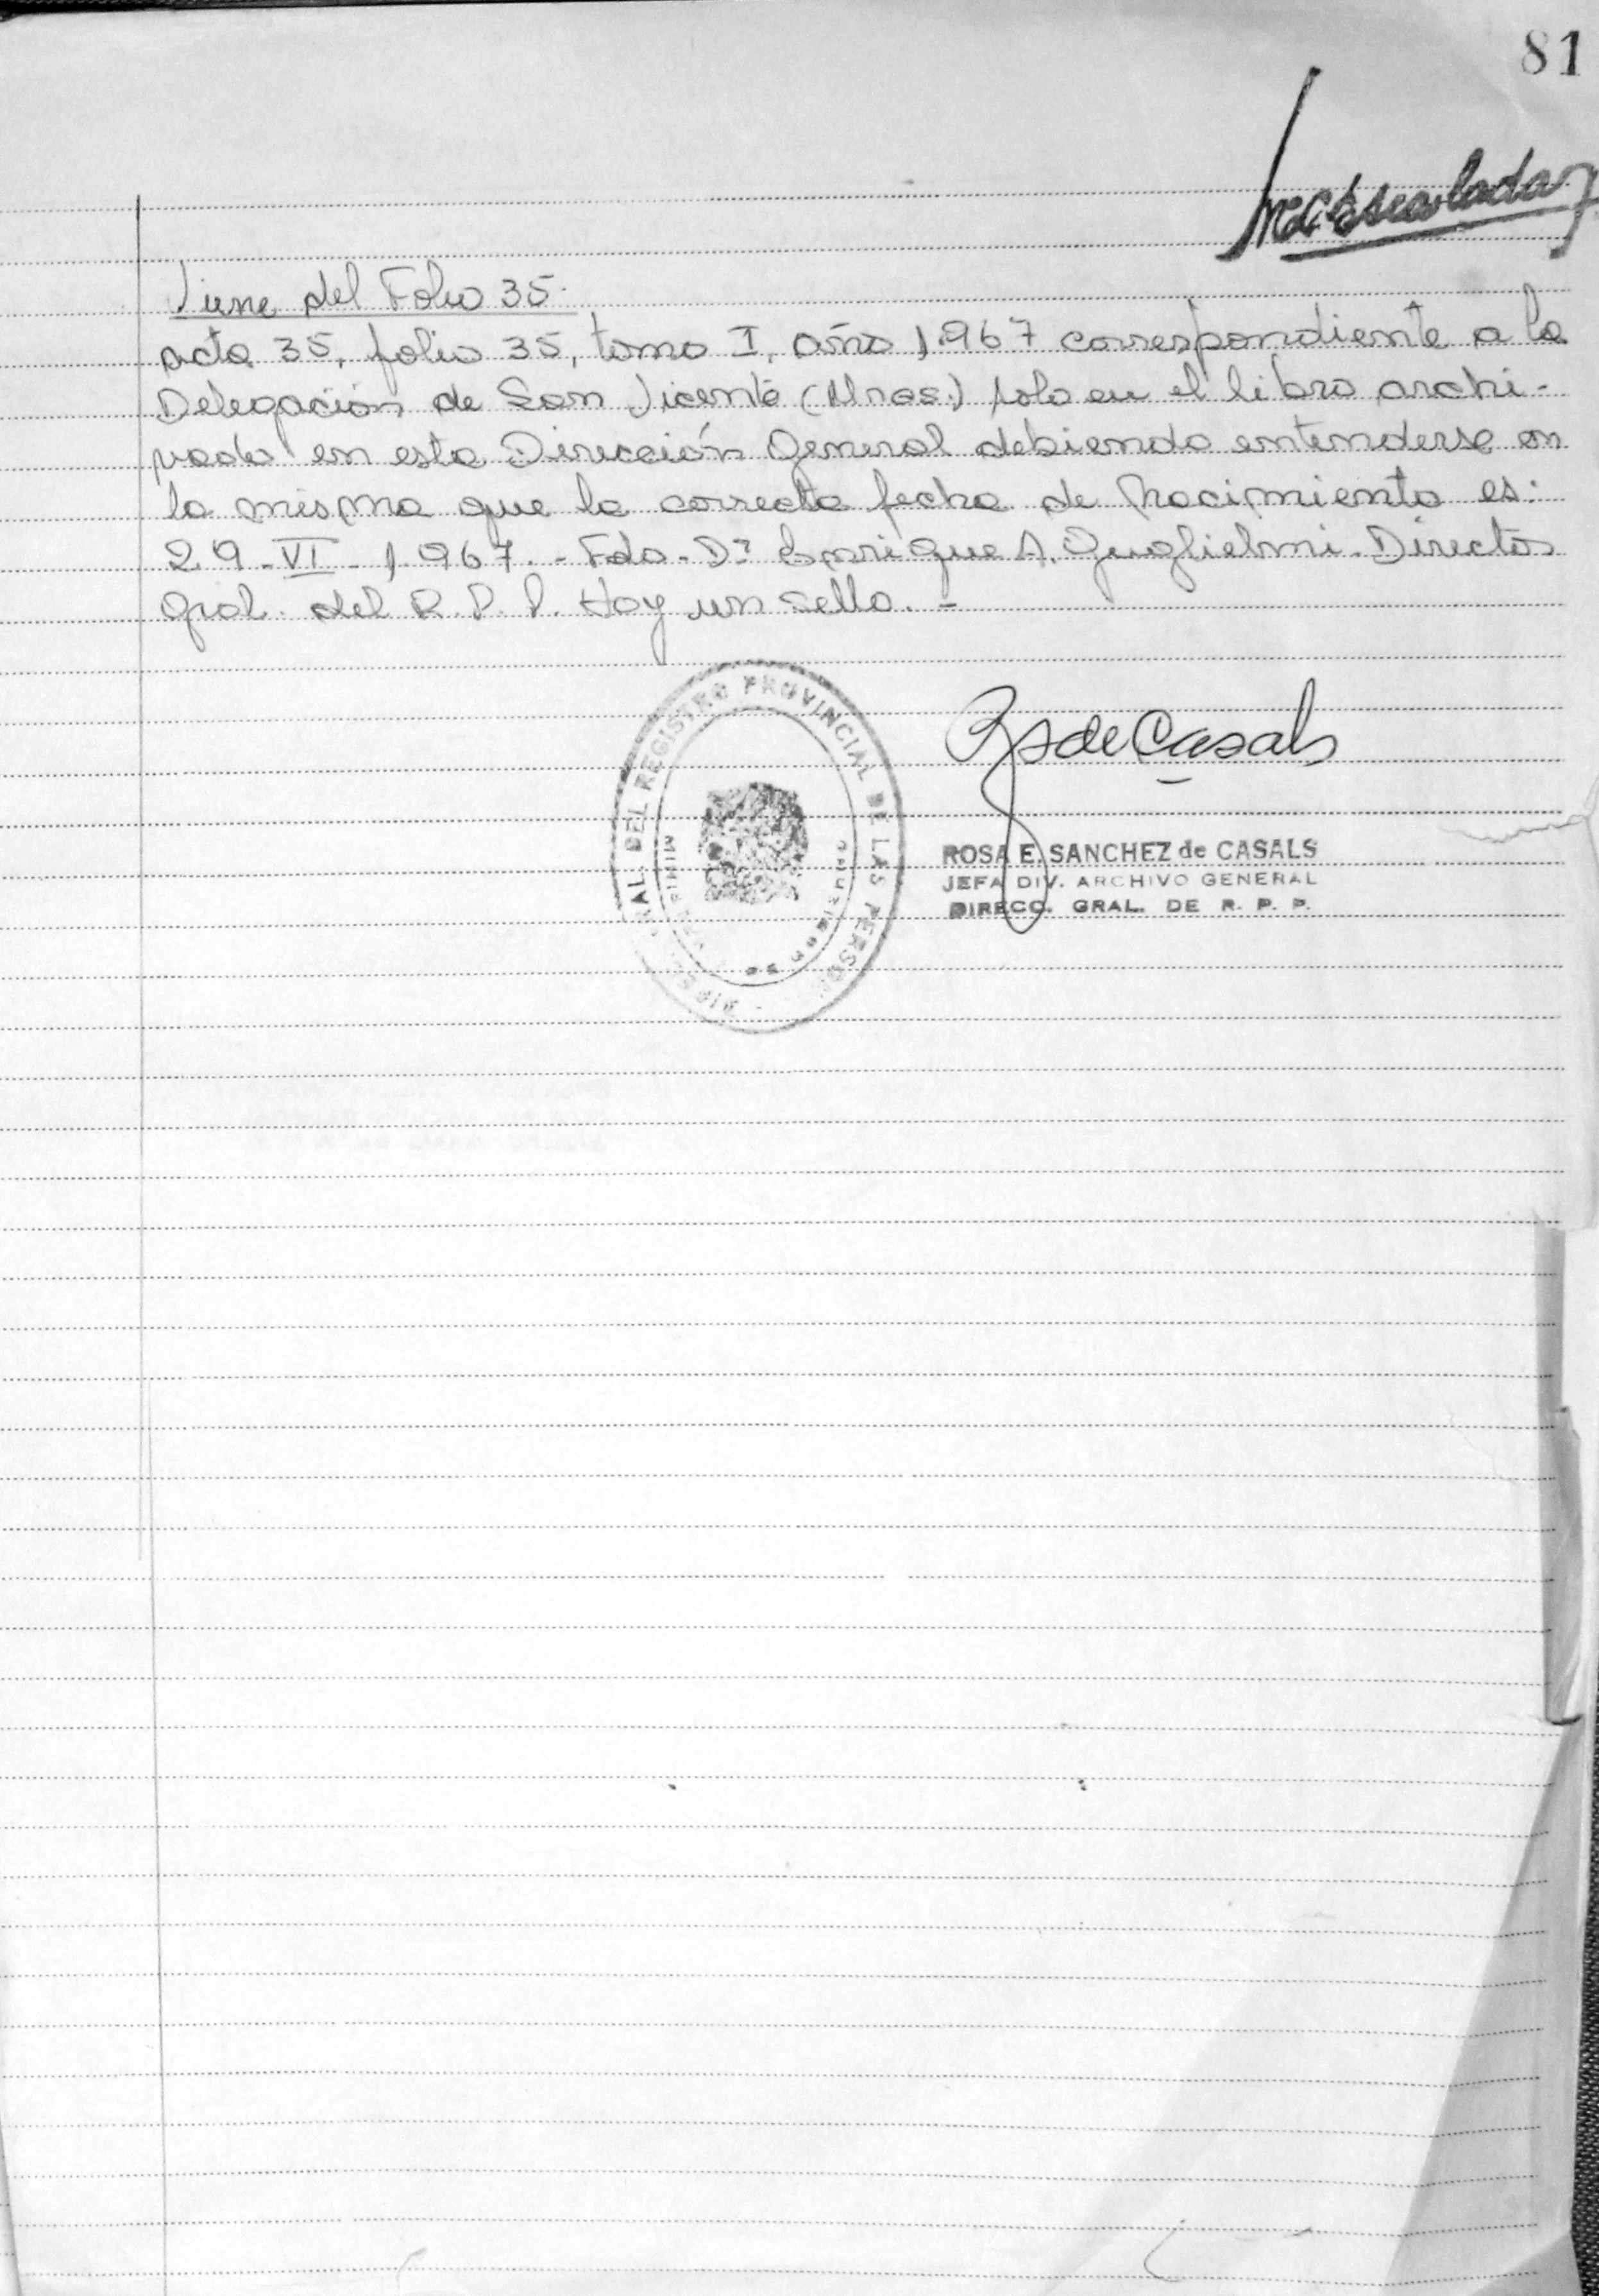 81
Viene del Folio 35.
acta 35, folio 35, tomo I, año 1.967 correspondiente a la
Delegación de San Vicente (Mnes.) solo en el libro archi-
vado en esta Dirección General debiendo entenderse en
la misma que la correcta fecha de Nacimiento es:
29-VI-1.967.- Fdo- Dr Enrique A. Guglielmi- Director
Gral. del R.P.P. Hay un sello.-
DEL REGISTRO PROVINCIAL DE LAS
RsdeCasals
ROSA E. SANCHEZ de CASALS
JEFA DIV. ARCHIVO GENERAL
DIRECC. GRAL. DE R. P. P.